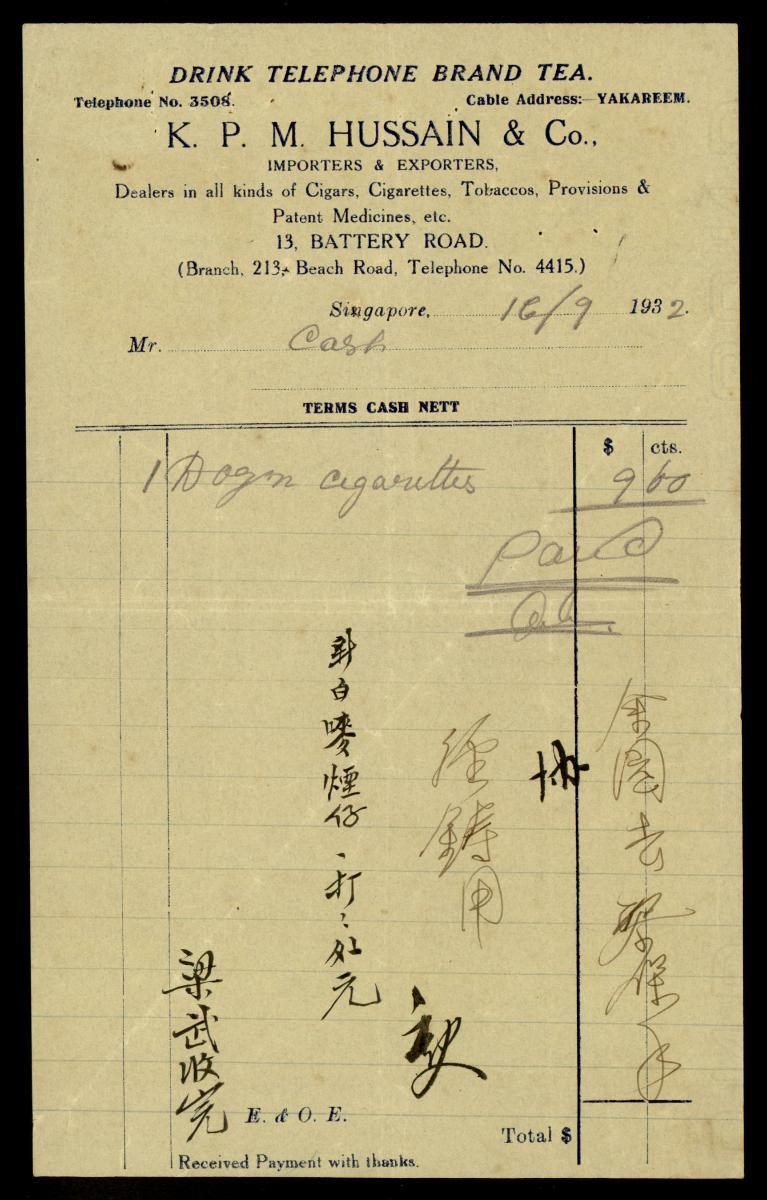 DRINK TELEPHONE BRAND TEA.
Telephone No. 3508.
Cable Address:- YAKAREEM.
K. P. M. HUSSAIN & Co.,
IMPORTERS & EXPORTERS,
Dealers in all kinds of Cigars, Cigarettes, Tobaccos, Provisions &
Patent Medicines, etc.
13, BATTERY ROAD.
(Branch, 213, Beach Road, Telephone No. 4415.)
Singapore, 16/9 1932.
Mr. Cash
TERMS CASH NETT
$ cts.
1 Dozn cigarettes 9 60
Paid
協
白嘜煙仔
打
元
鑄用
梁武收完
E. & O. E.
Total $
Received Payment with thanks.